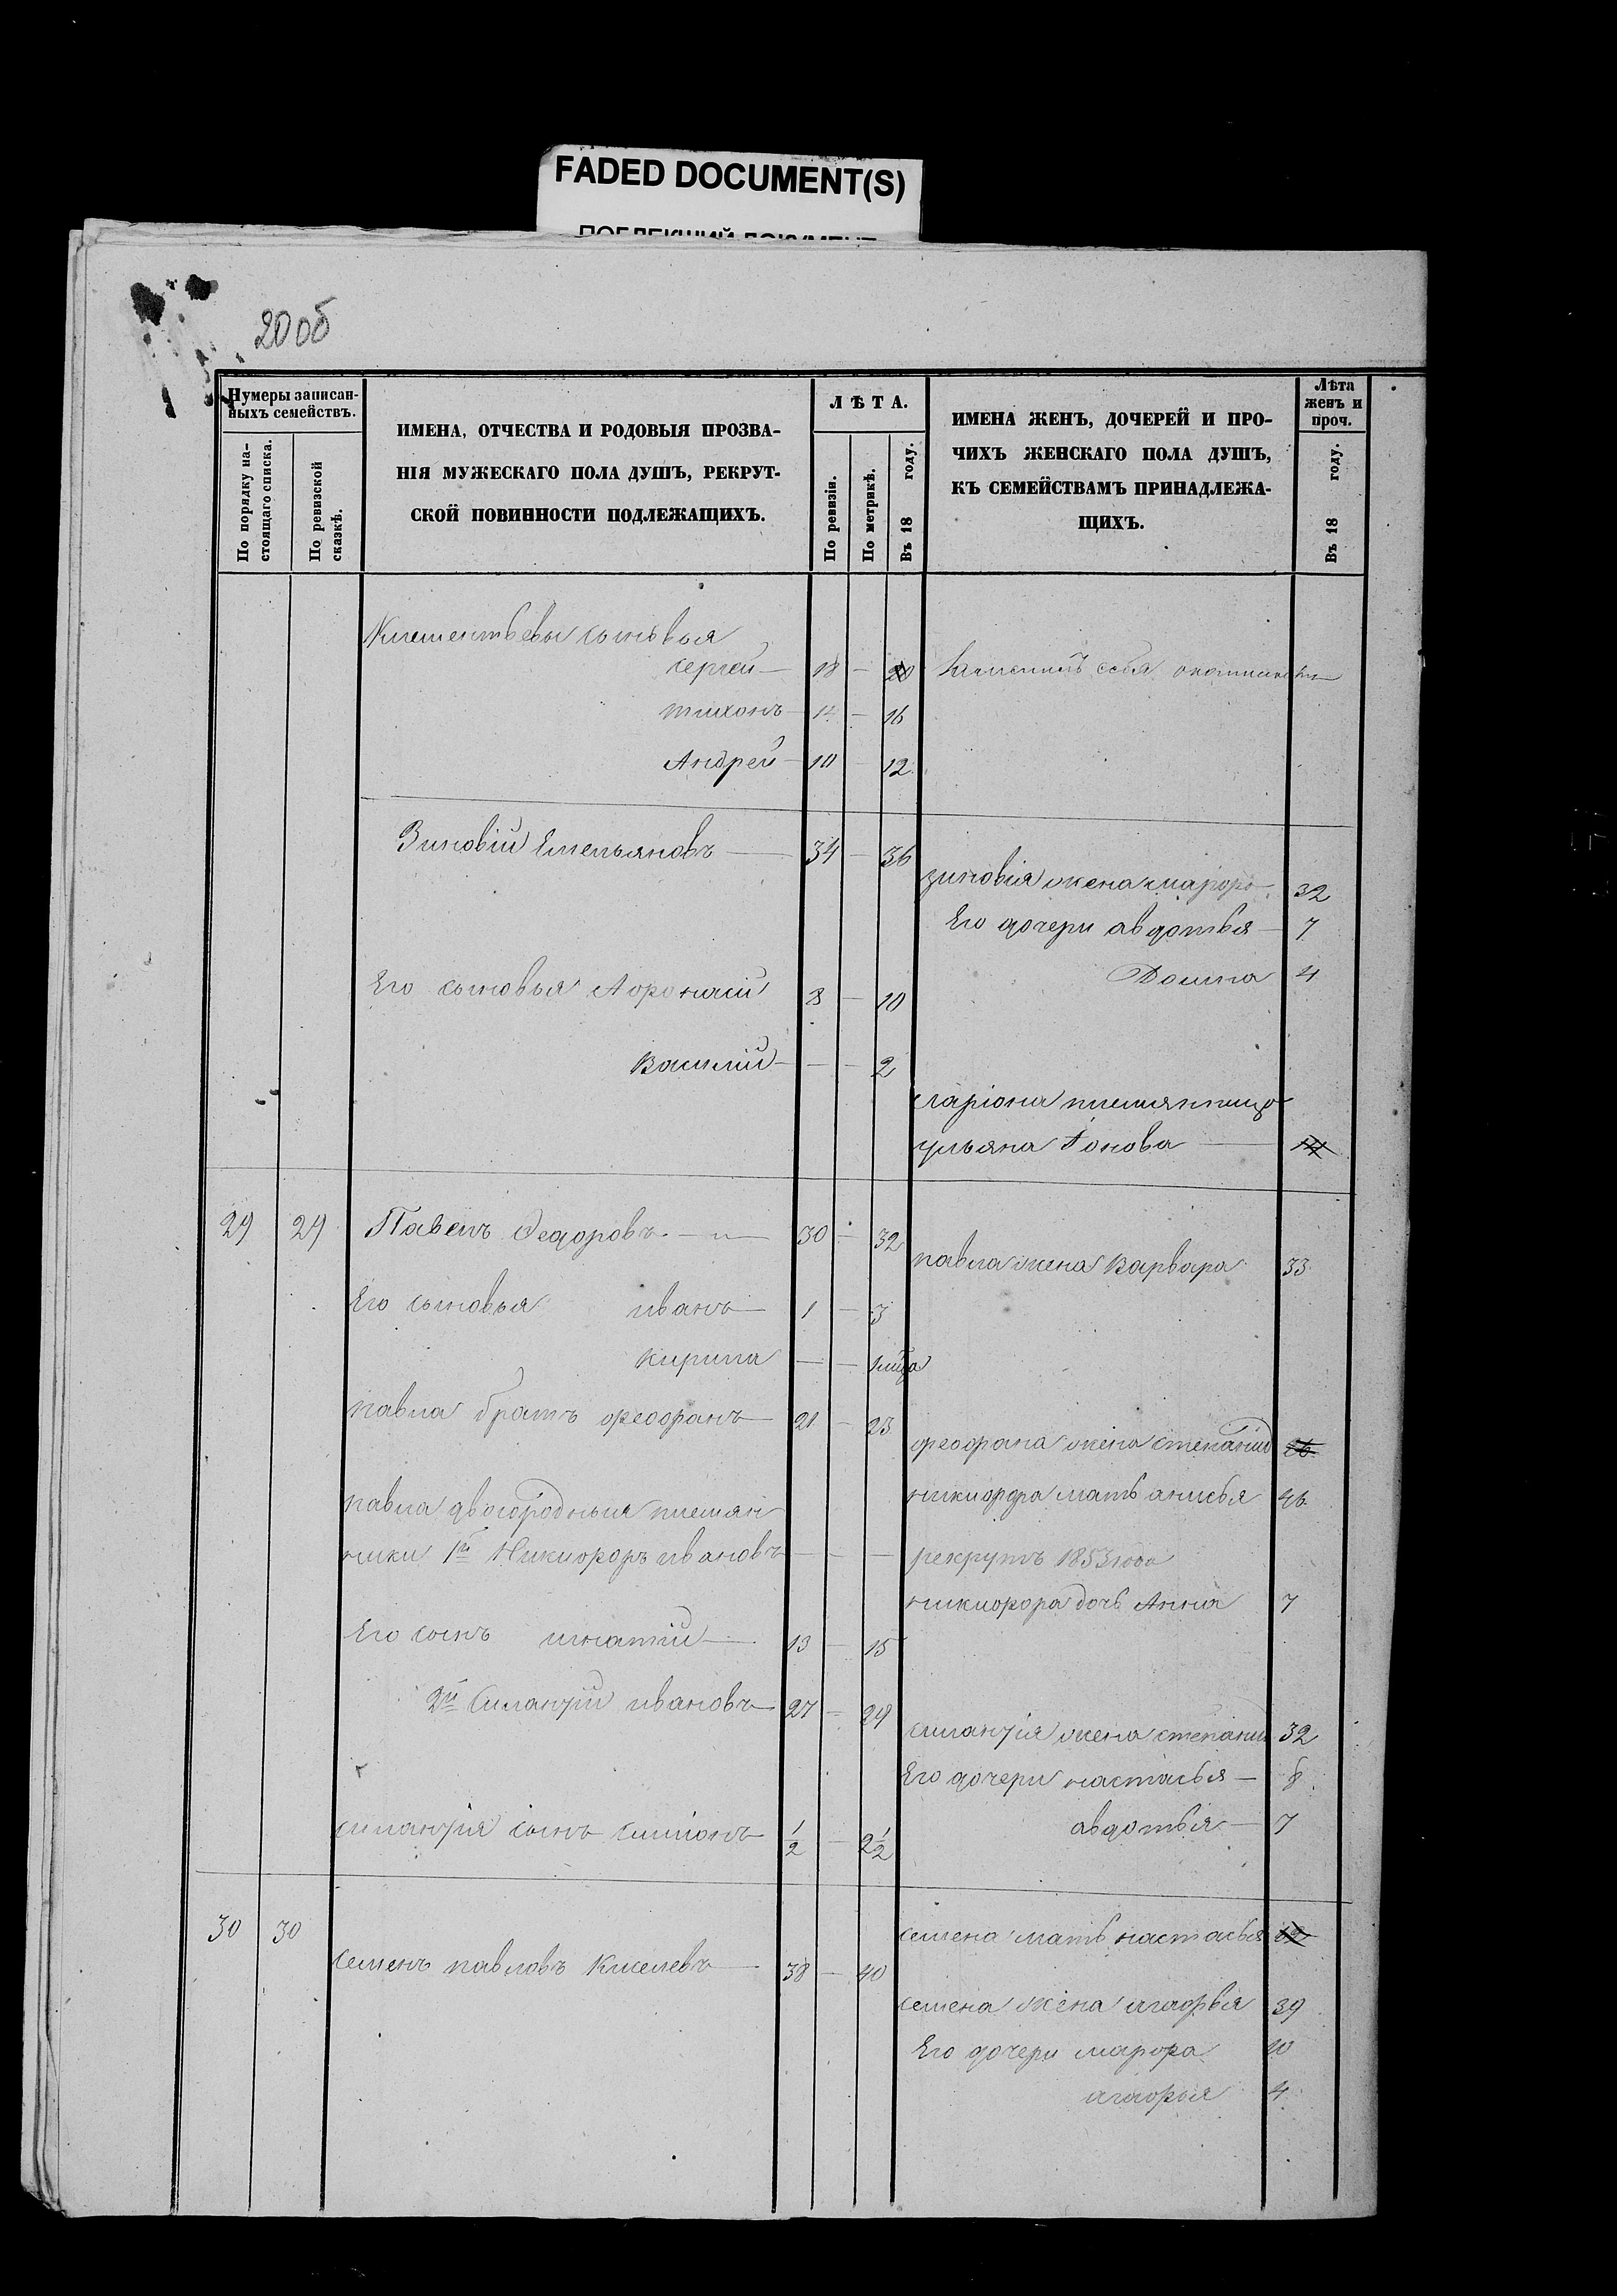 FADED DOCUMENT(S)
20 об
Нумеры записан-
ныхъ семействъ.
По порядку на-
стоящаго списка.
По ревизской
сказкѣ.
ИМЕНА, ОТЧЕСТВА И РОДОВЫЯ ПРОЗВА-
НІЯ МУЖЕСКАГО ПОЛА ДУШЪ, РЕКРУТ-
СКОЙ ПОВИННОСТИ ПОДЛЕЖАЩИХЪ.
ЛѢТА.
По ревизіи.
По метрикѣ.
Въ 18 году.
ИМЕНА ЖЕНЪ, ДОЧЕРЕЙ И ПРО-
ЧИХЪ ЖЕНСКАГО ПОЛА ДУШЪ,
КЪ СЕМЕЙСТВАМЪ ПРИНАДЛЕЖА-
ЩИХЪ.
Лѣта
женъ и
проч.
Въ 18 году.
сыновья
сергей 18 — 20 себя
тихонъ 14 — 16
Андрей 10 — 12
Зиновій Емельяновъ 34 — 36
зиновія жена марфа 32
Его дочери авдотья 7
Домна 4
Его сыновья Афонасій 8 — 10
Василій — — 2
ларіона племянница
ульяна
29 29 Павелъ Федоровъ 30 — 32
павла жена Варвара 33
Его сыновья иванъ 1 — 3
кирила — —
павла братъ феофанъ 21 — 23
феофана жена степанид 26
никифора мать анисья 46
павла двоюродныя племян
ники 1й Никифоръ ивановъ — — — рекрутъ 1853 года
никифора дочь Анна 7
Его сынъ игнатій 13 — 15
2й Силантій ивановъ 27 — 29
силантія жена степанид 32
Его дочери настасья — 8
авдотья — 7
силантія сынъ симіонъ 1/2 — 2 1/2
30 30
семена мать настасья
семенъ павловъ Киселевъ 38 — 40
семена жена агафья 39
Его дочери марфа 10
агафья 4